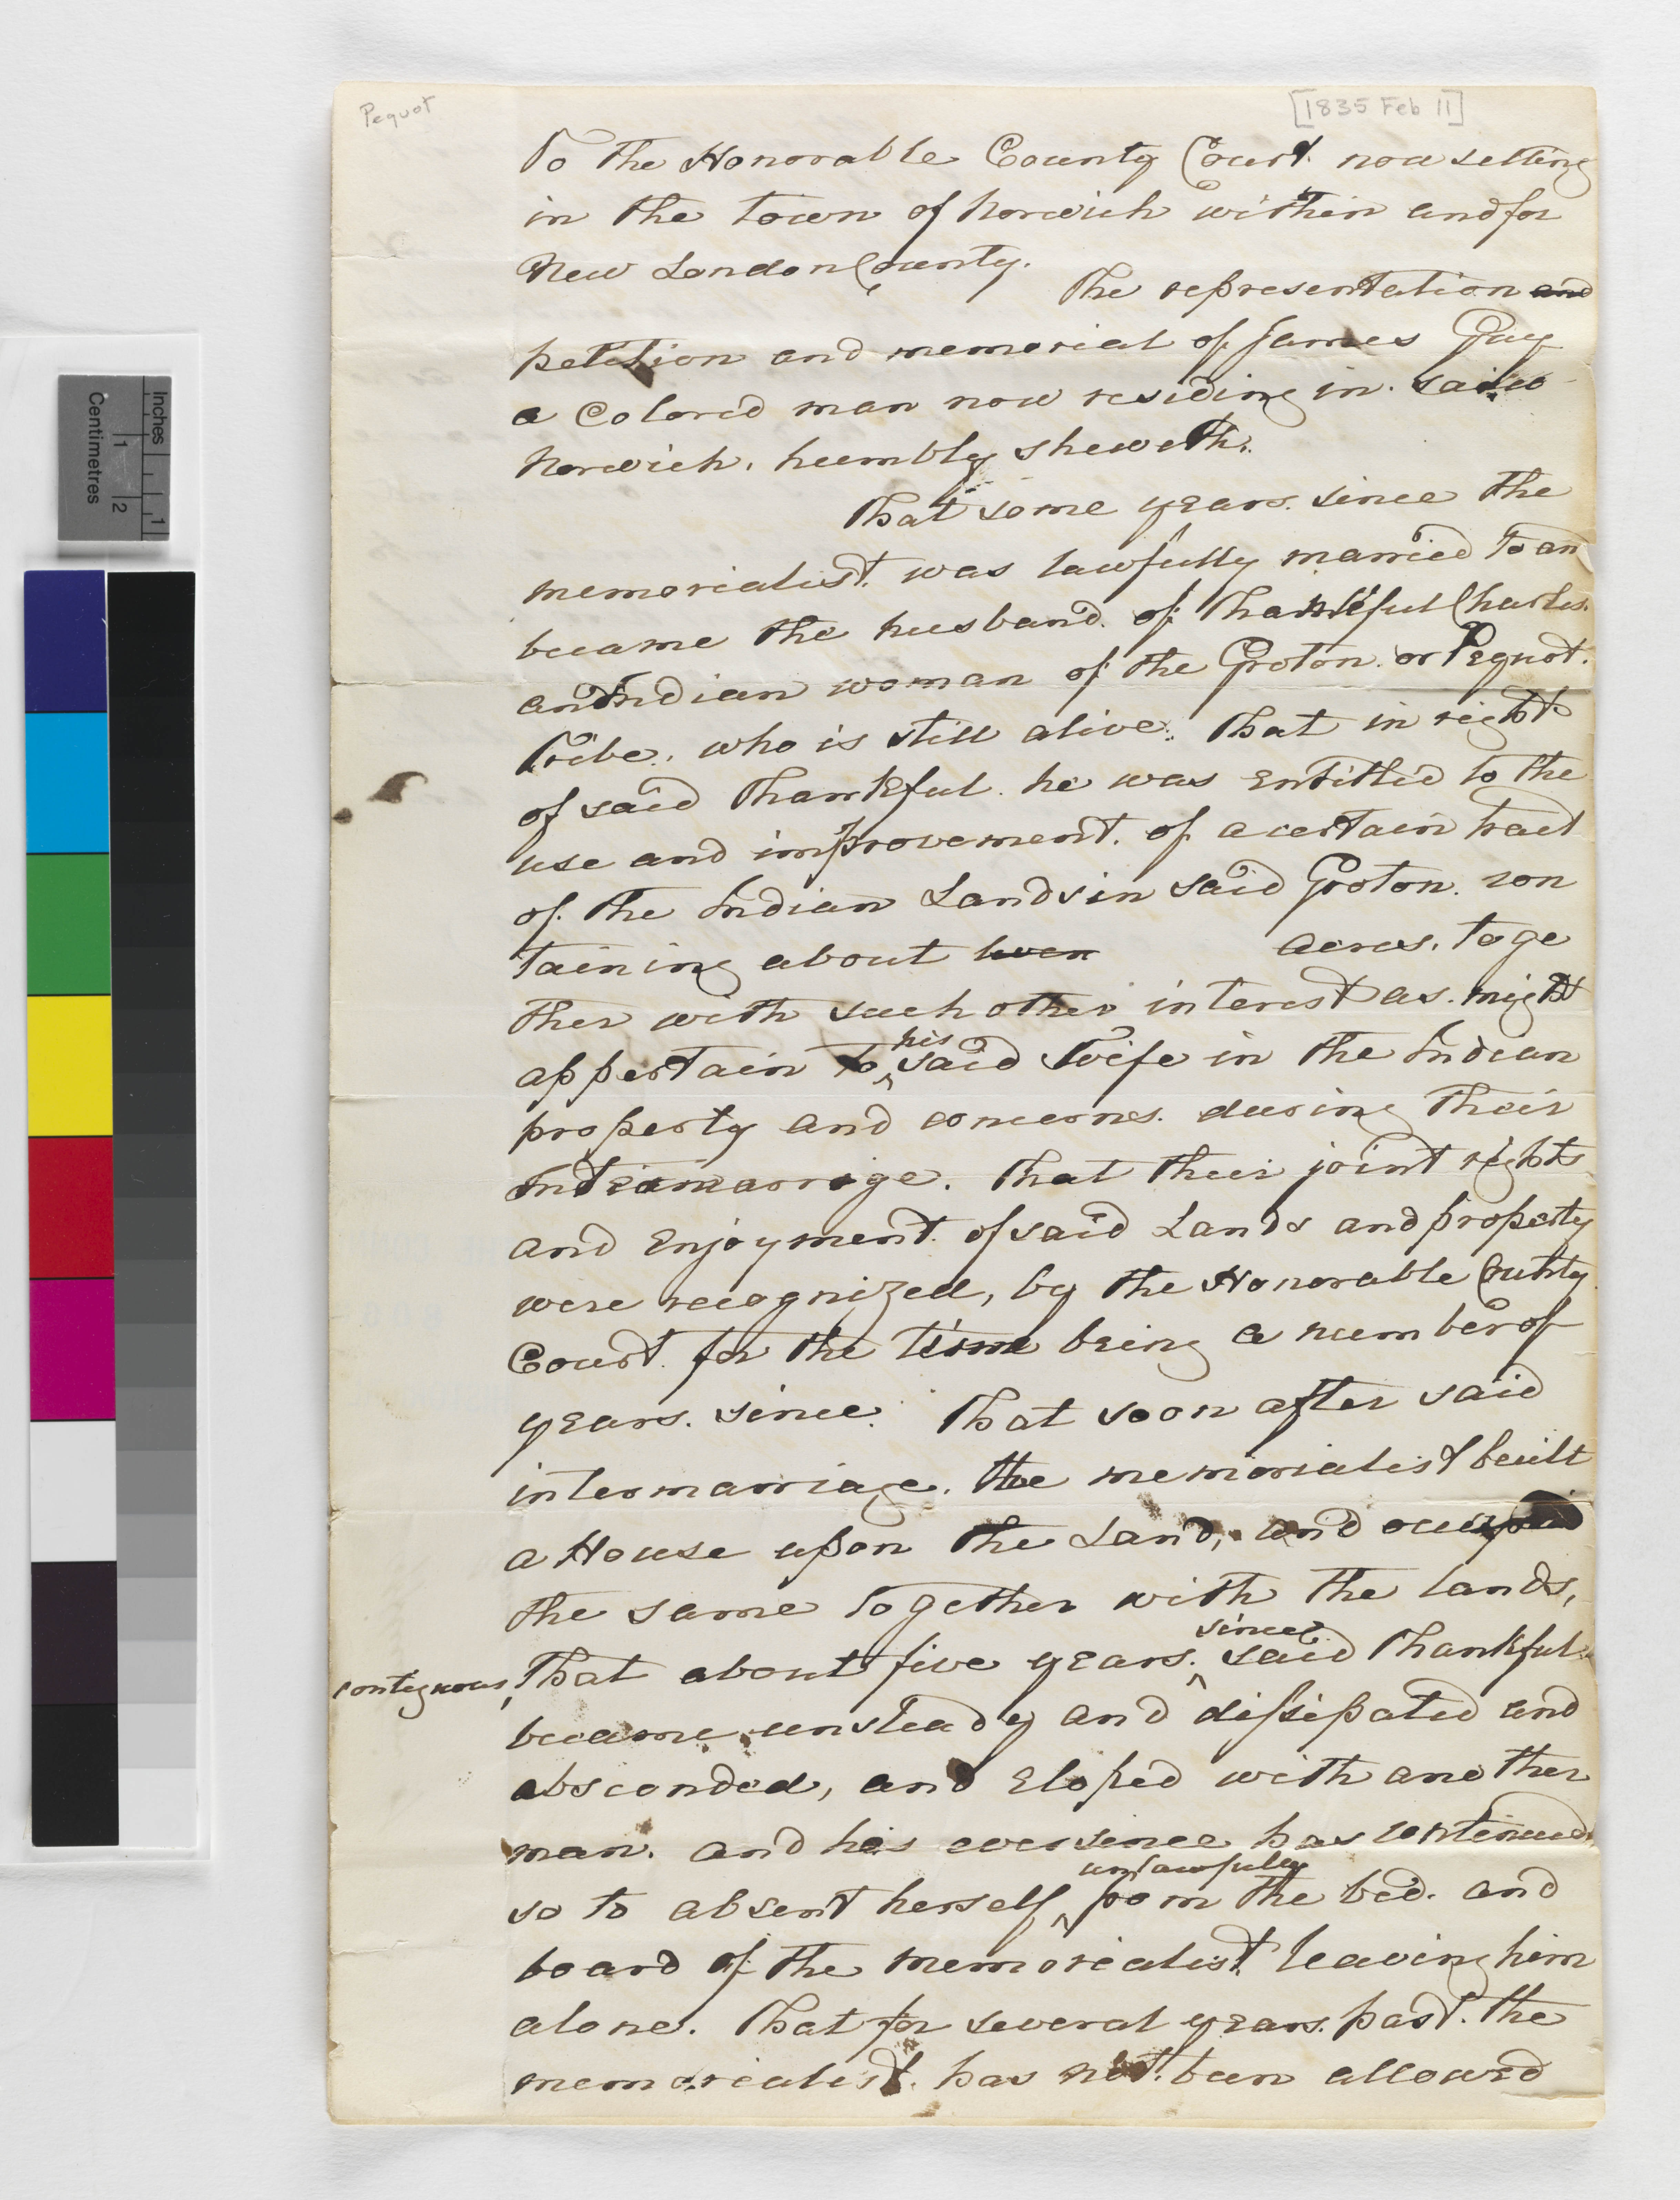 Pequot
[1835 Feb 11]
To the Honorable County Court now setting
in the town of Norwich within and for
New London County.
The representation and
petition and memorial of James Gay
a Colored man now residing in said
Norwich, humbly sheweth.
That some years since the
memorialist was lawfully married to an
became the husband of Thankful Charles
an Indian woman of the Groton or Pequot
Tribe, who is still alive. That in right
of said Thankful he was Entitled to the
use and improvement of a certain tract
of the Indian Lands in said Groton con
taining about acres, toge
ther with such other interest as might
appertain to his said Wife in the Indian
property and concerns during their
marrige. That their joint rights
and Enjoyment of said Lands and property
were recognized, by the Honorable County
Court for the time being a number of
years since. That soon after said
intermarriage, the memorialist built
a House upon the Land, and occupied
the same together with the lands,
contiguous, That about five years since said Thankful
became unsteady and dissipated and
absconded, and Eloped with another
man. and has ever since has continued
so to absent herself unlawfully from the bed and
board of the memorialist leaving him
alone. That for several years past the
memorialist has not been allowed